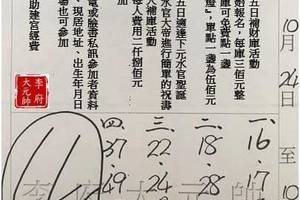 10月24日至10
五日補財庫活動
始報名，每庫三佰元整
庫可免費點一盞
燈』，單點一盞為伍佰元
五日適達下元水官聖誕
官大帝進行簡單的祝壽
人補庫活動
每人費用二仟捌佰元
電或臉書私訊參加者資料
、現居地址、出生年月日
場也可參加
助建宮經費
李府
大元帥
一、16、17
二、18、28
三、22、24
四、37、49
李府大元帥